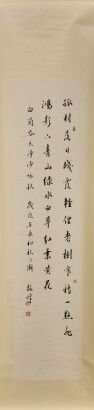 孤村落日殘霞輕煙老樹寒鴉一點飛
鴻影下青山綠水白草紅葉黃花
天淨沙 秋 歲次 初秋